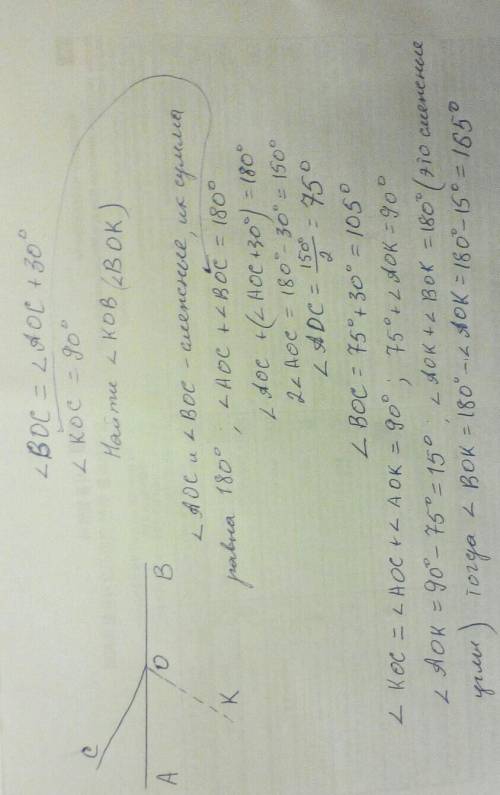 ∠BOC = ∠AOC + 30°
∠KOC = 90°
Найти ∠KOB (∠BOK)
C
A
O
B
K
∠AOC и ∠BOC - смежные, их сумма
равна 180°; ∠AOC + ∠BOC = 180°
∠AOC + (∠AOC+30°) = 180°
2∠AOC = 180° - 30° = 150°
∠AOC = 150°/2 = 75°
∠BOC = 75° + 30° = 105°
∠KOC = ∠AOC + ∠AOK = 90° ; 75° + ∠AOK = 90°
∠AOK = 90° - 75° = 15° ; ∠AOK + ∠BOK = 180° (это смежные
углы) Тогда ∠BOK = 180° - ∠AOK = 180° - 15° = 165°